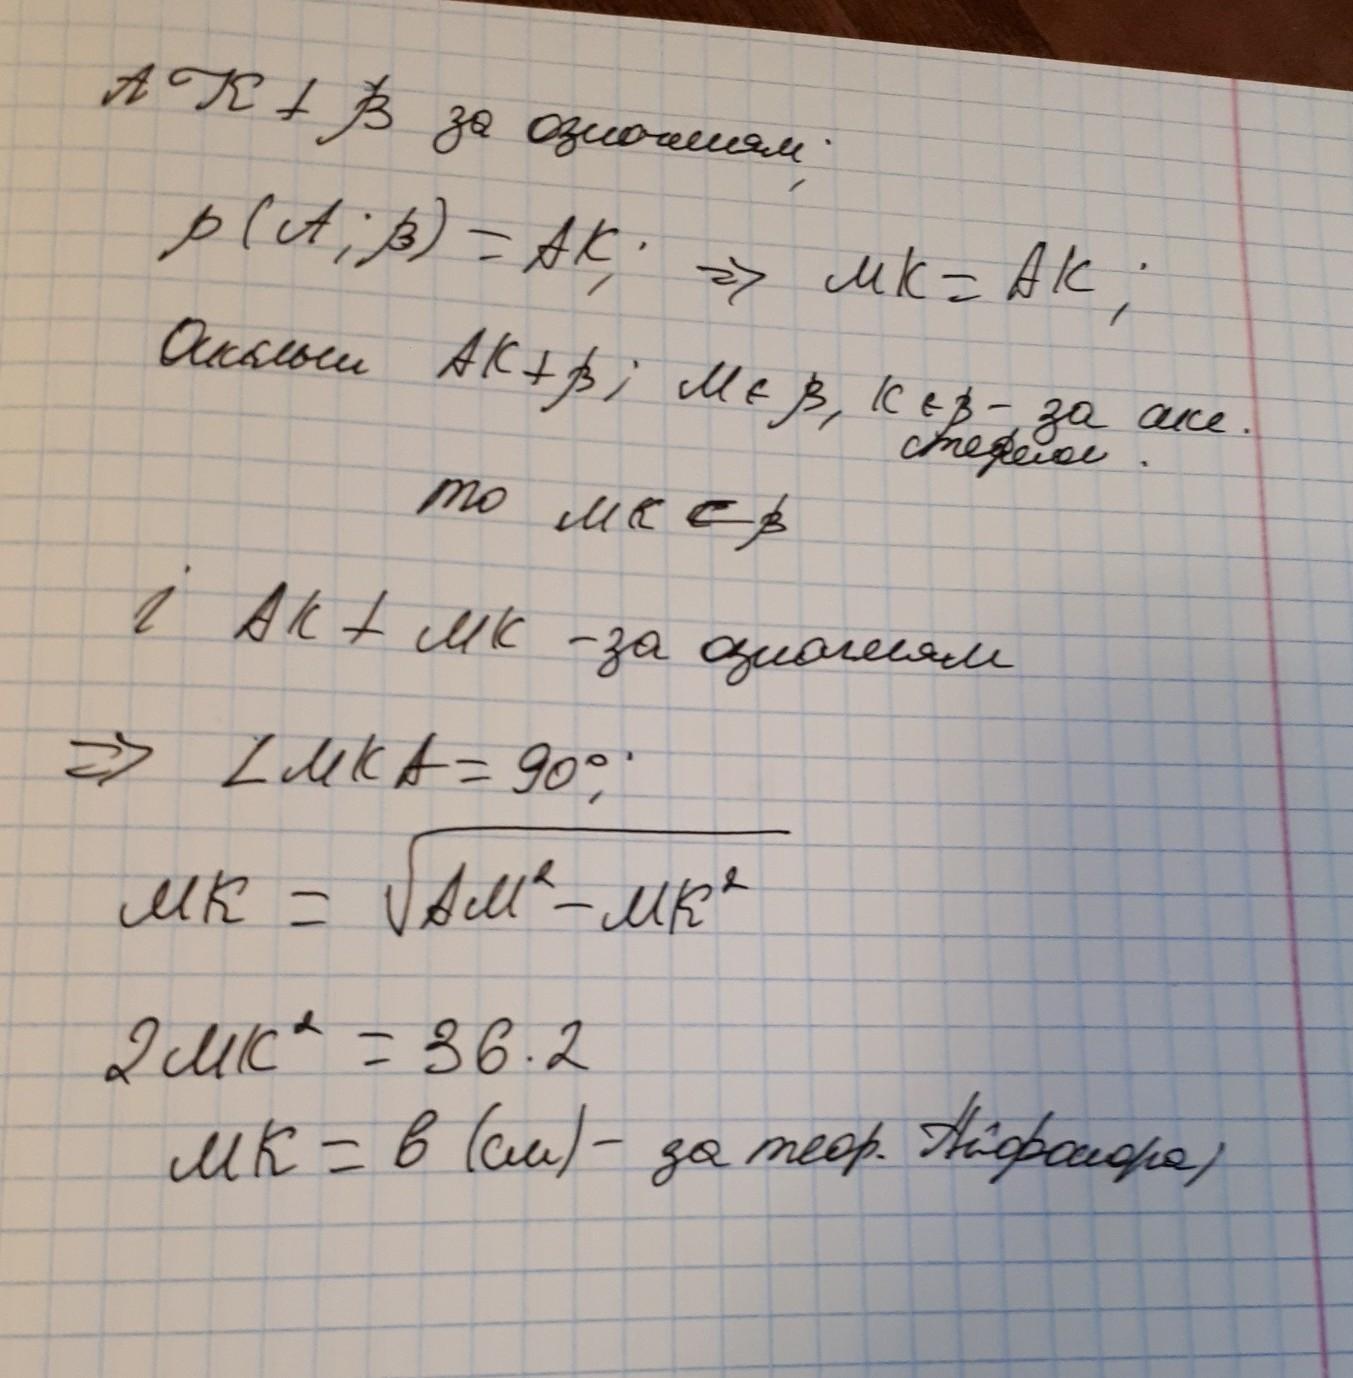 AK ⊥ β за означенням;
ρ(A; β) = AK; => MK = AK;
Оскільки AK ⊥ β; M ∈ β, K ∈ β - за акс.
стереом.
то MK ⊂ β
і AK ⊥ MK - за означенням
=> ∠MKA = 90°;
MK = √AM² - MK²
2MK² = 36·2
MK = 6 (см) - за теор. Піфагора;